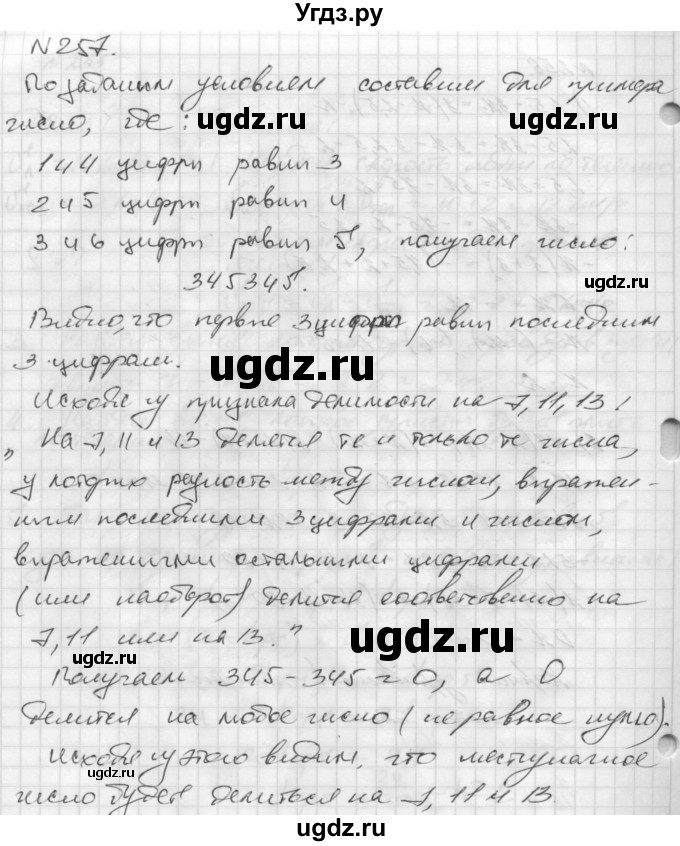 Угдз.ру
N 257.
По заданым условием составим для примера
число, где:
ugdz.ru
ugdz.ru
1 и 4 цифры равны 3
2 и 5 цифры равны 4
3 и 6 цифры равны 5, получаем число:
345345.
ugdz.ru
Видно, что первые 3 цифры равны последним
3 цифрам.
ugdz.ru
Исходя из признака делимости на 7, 11, 13!
„На 7, 11 и 13 делятся те и только те числа,
у которых разность между числом, выражен-
ным последними 3 цифрами и числом,
выраженными остальными цифрами
(или наоборот) делится соответственно на
7, 11 или на 13."
ugdz.ru
ugdz.ru
Получаем 345-345=0, а 0
делится на любое число (не равное нулю).
Исходя из этого видим, что шестизначное
ugdz.ru
число будет делиться на 7, 11 и 13.
ugdz.ru